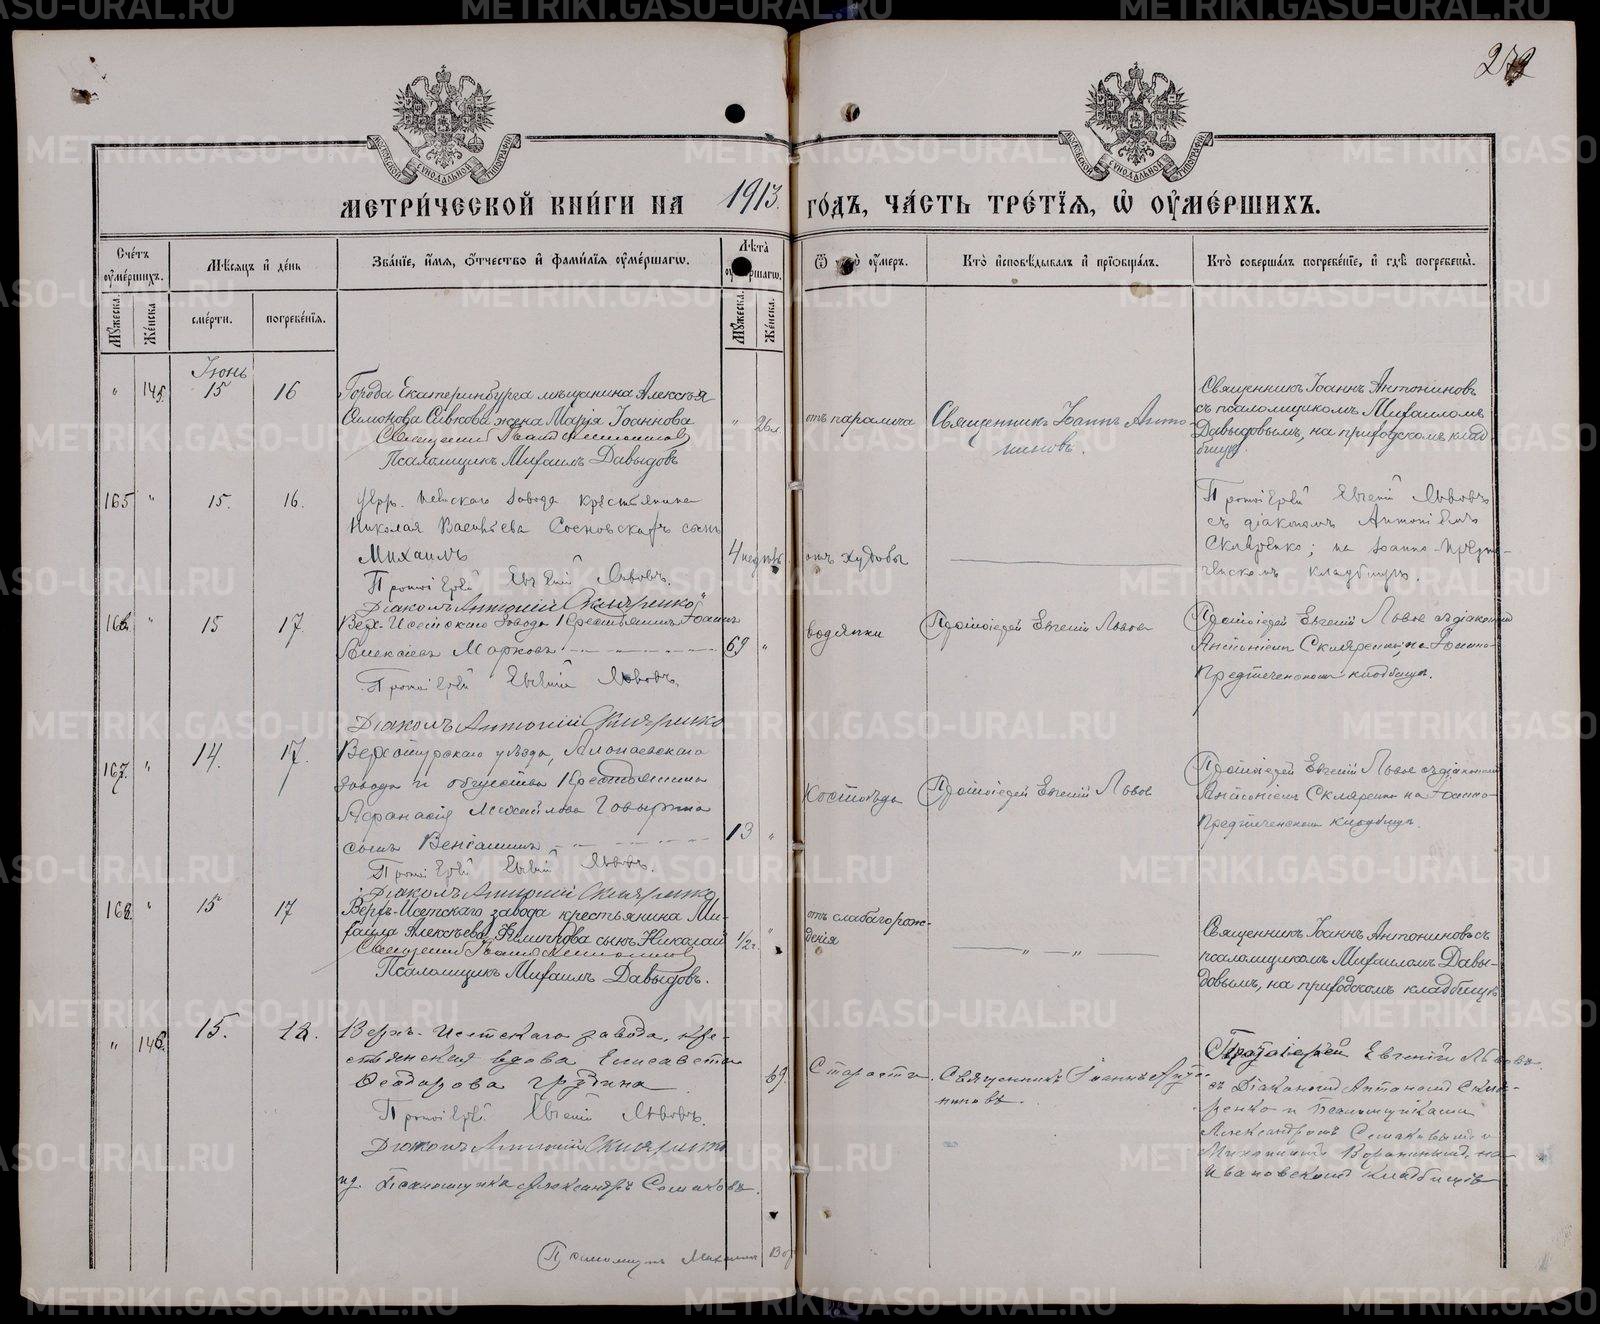 272
МОСКОВСКОЙ СѴНОДАЛЬНОЙ ТИПОГРАФІИ
МОСКОВСКОЙ СѴНОДАЛЬНОЙ ТИПОГРАФІИ
МЕТРИ́ЧЕСКОЙ КНИ́ГИ НА 1913. ГО́ДЪ, ЧА́СТЬ ТРЕ́ТІѦ, Ѡ ОУМЕ́РШИХЪ.
Сче́тъ оуме́ршихъ.
Мѣсяцъ и де́нь
Зва́ніе, и́мя, ѻ́тчество и фами́лія оуме́ршагѡ.
Лѣта̀ оуме́ршагѡ.
Ѿ чего̀ оу́меръ.
Кто̀ и҆сповѣ́дывалъ и҆ прїѡбща́лъ.
Кто̀ соверша́лъ погребе́ніе, и҆ гдѣ̀ погребены̀.
Му́жеска. Же́нска.
сме́рти. погребе́нія.
Му́жеска. Же́нска.
Іюнь
" 145. 15 16
Города Екатеринбурга мѣщанина Алексѣя
Симонова Сивкова жена Марія Іоаннова
Священникъ Іоаннъ Антониновъ
Псаломщикъ Михаилъ Давыдовъ
" 26 л.
отъ паралича
Священникъ Іоаннъ Анто-
ниновъ.
Священникъ Іоаннъ Антониновъ
съ псаломщикомъ Михаиломъ
Давыдовымъ, на приходскомъ клад-
бищѣ.
165 " 15. 16.
Верх. Исетскаго завода крестьянина
Николая Васильева Сосновскаго сынъ
Михаилъ
Протоіерей Евгеній Львовъ.
Діаконъ Антоній Скляренко
4 недѣль
отъ худобы
Протоіерей Евгеній Львовъ
съ діакономъ Антоніемъ
Скляренко; на Іоанно-Предте-
ченскомъ кладбищѣ.
166. " 15 17.
Верх-Исетскаго завода Крестьянинъ Іоаннъ
Алексѣевъ Марковъ
Протоіерей Евгеній Львовъ.
Діаконъ Антоній Скляренко
69 "
водянки
Протоіерей Евгеній Львовъ
Протоіерей Евгеній Львовъ съ діакономъ
Антоніемъ Скляренко, на Іоанно-
Предтеченскомъ кладбищѣ.
167. " 14. 17.
Верхотурскаго уѣзда, Алапаевскаго
завода и общества Крестьянина
Афанасія Михайлова
сынъ Веніаминъ
Протоіерей Евгеній Львовъ.
Діаконъ Антоній Скляренко
13 "
Костоѣда
Протоіерей Евгеній Львовъ
Протоіерей Евгеній Львовъ съ діакономъ
Антоніемъ Скляренко на Іоанно-
Предтеченскомъ кладбищѣ.
168. " 15 17
Верхъ-Исетскаго завода крестьянина Ми-
хаила Алексѣева сынъ Николай
Священникъ Іоаннъ Антониновъ
Псаломщикъ Михаилъ Давыдовъ.
1/2 г. "
отъ слабаго рож-
денія
" — "
Священникъ Іоаннъ Антониновъ съ
псаломщикомъ Михаиломъ Давы-
довымъ, на приходскомъ кладбищѣ
" 146. 15. 18.
Верхъ-Исетскаго завода, кре-
стьянская вдова Елисавета
Ѳеодорова Грязина
Протоіерей Евгеній Львовъ.
Діаконъ Антоній Скляренко
и. д. Псаломщика Александръ Семаковъ.
Псаломщикъ Михаилъ
69.
Старости.
Священникъ Іоаннъ Анто-
ниновъ.
Протоіерей Евгеній Львовъ
съ Діакономъ Антоніемъ Скля-
ренко и Псаломщиками
Александромъ Семаковымъ и
Михаиломъ на
Ивановскомъ кладбищѣ
METRIKI.GASO-URAL.RU